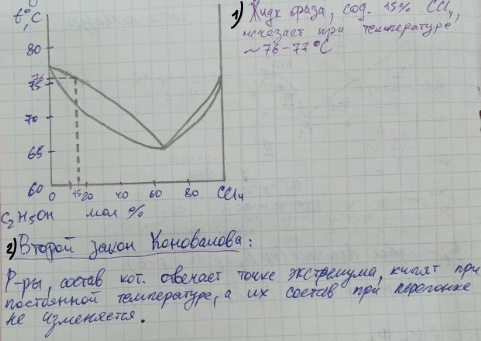 t°C
1) Жидк фаза, сод. 15% CCl₄,
исчезает при температуре
~76-77°C
80
76
75
70
65
60
0 15 20 40 60 80 CCl₄
C₂H₅OH мол %
2) Второй закон Коновалова:
Р-ры, состав кот. отвечает точке экстремума, кипят при
постоянной температуре, а их состав при перегонке
не изменяется.